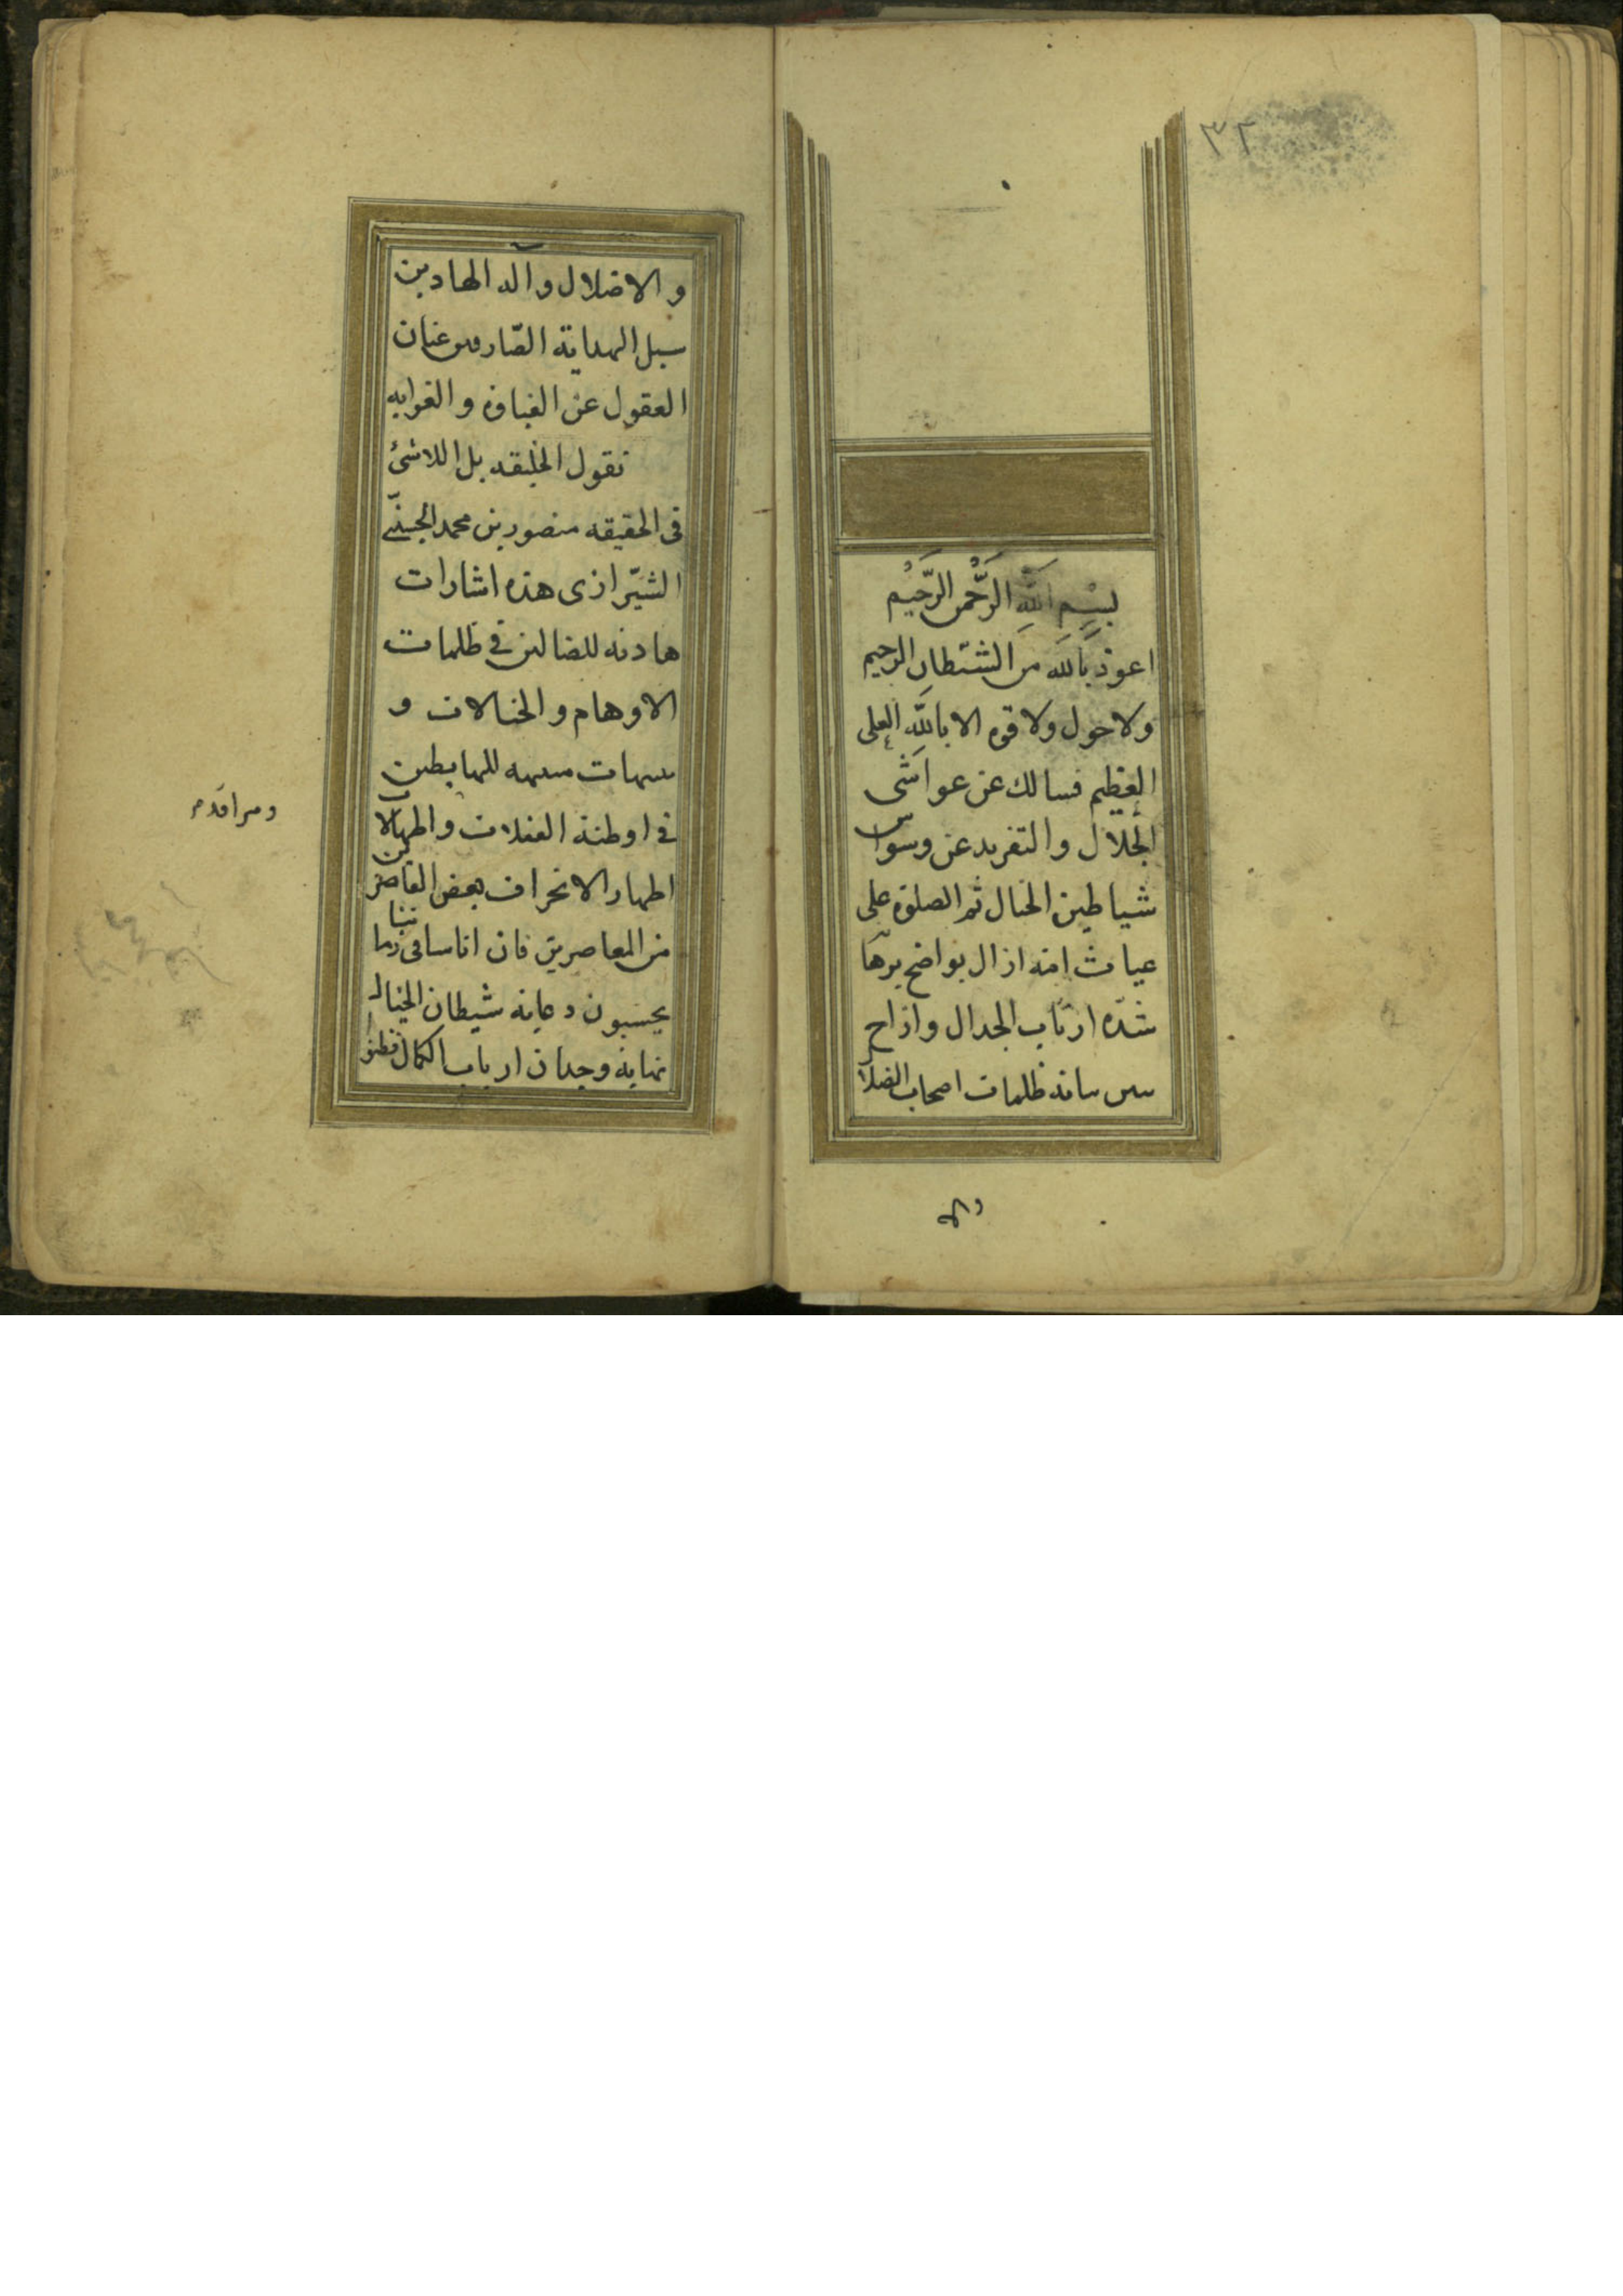 ٣٢
بِسْمِ اللَّهِ الرَّحْمنِ الرَّحِيْمِ
اعوذ بالله من الشيطان الرجيم
ولا حول ولا قوه الا بالله العلى
العظيم فسالك عن غواشى
الجلال والتفريد عن وسواس
شياطين الخيال ثم الصلوة على
غياث امته ازال بواضح برها
شده ارباب الجدال وازاح
ظلمات اصحاب الضلال
والاضلال وآله الهادين
سبل الهداية الصّارفين عنان
العقول عن الغباوه والغوايه
نقول الخليقه بل اللاشئ
فى الحقيقه منصور بن محمد الحسنىّ
الشيّرازى هذه اشارات
هاديه للضالين فى ظلمات
الاوهام والخيالات و
للهابطين
فى اوطنة الغفلات والجهالات
اظهار الانحراف بعض القاصرين
من المعاصرين فان اناسا فى زماننا
يحسبون دعابه شيطان الخيال
نهايه وجدان ارباب الكمال فظنوا